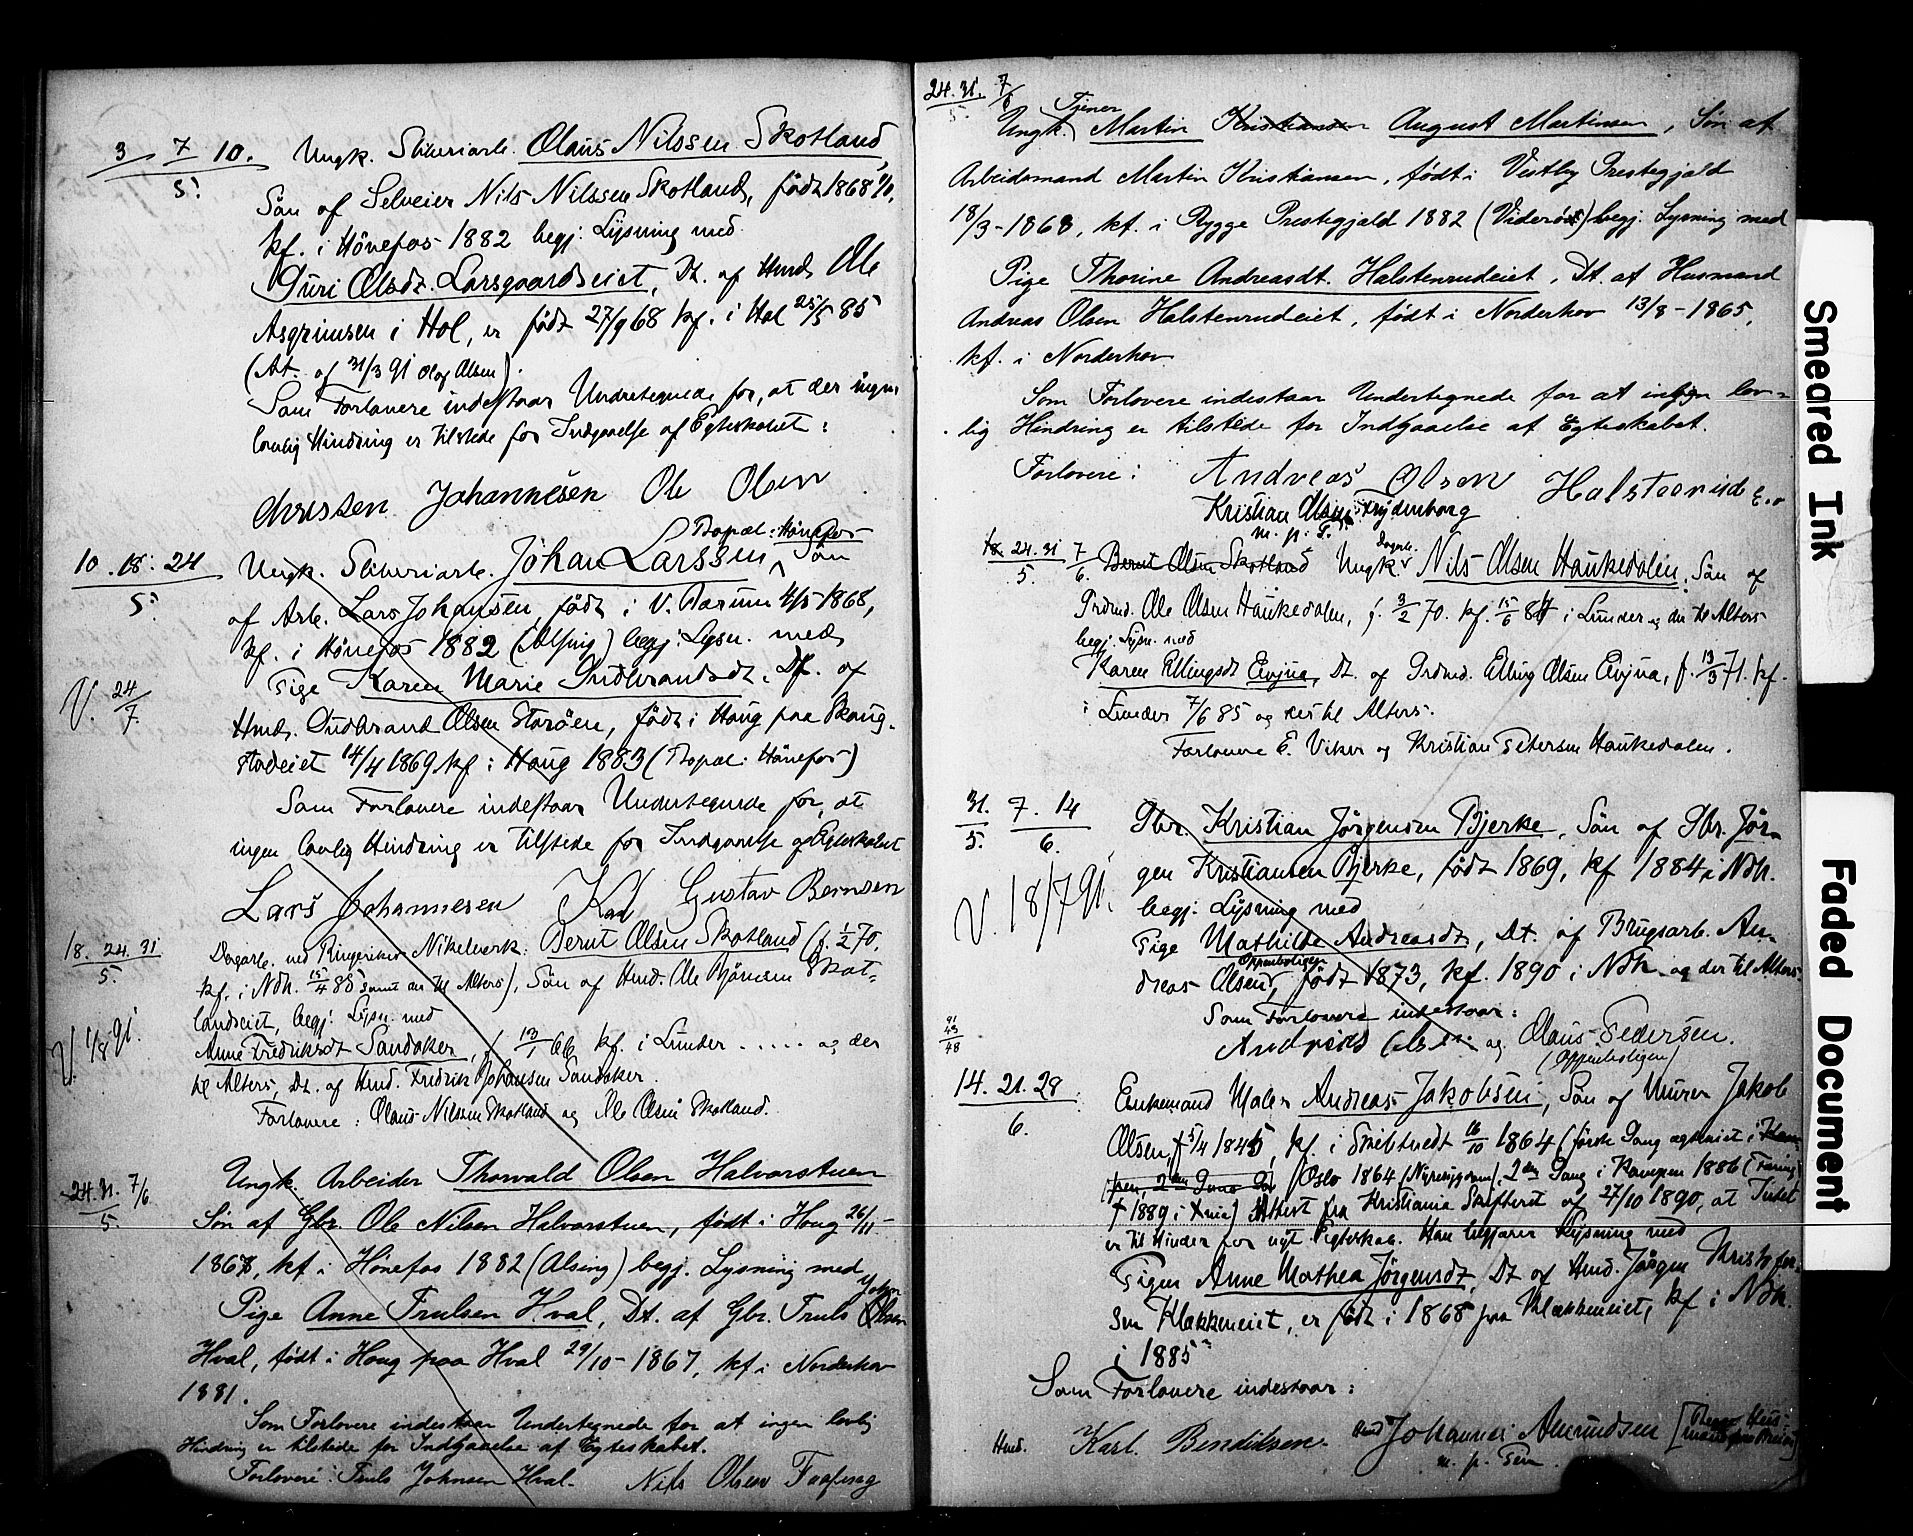 3 7 10.
5.
Ungk. Sliberiarb. Olaus Nilssen Skotland,
Søn af Selveier Nils Nilssen Skotland, født 1868
kf. i Hönefos 1882 begj. Lysning med
Guri Olsdt. Larsgaardseiet, Dt. af Hmd. Ole
Asgrimsen i Hol, er født 27/9 68 kf. i Hol 25/5 85
(At. af 31/3 91 Olaf Olsen).
Som Forlovere indestaar Undertegnede for, at der ingen
lovlig Hindring er tilstede for Indgaaelse af Egteskabet:
Christen Johannesen Ole Olsen
10. 18. 24
5.
Bopæl: Hönefos
Ungk. Sliberiarb. Johan Larssen, Søn
af Arb. Lars Johansen, født i V. Bærum 4/5 1868,
kf. i Hönefos 1882 (Alsing) begj. Lysn. med
Pige Karen Marie Gudbrandsdt. Dt. af
Hmd. Gudbrand Olsen Storöen, født i Haug paa Skaug-
stadeiet 14/4 1869 kf. i Haug 1883 (Bopæl: Hönefos)
V. 24/7.
Som Forlovere indestaar Undertegnede for, at
ingen lovlig Hindring er tilstede for Indgaaelse af Egteskabet
Lars Johannesen Karl Gustav Berntsen
18. 24. 31
5.
Dagarb. ved Ringerikes Nikelverk. Bernt Olsen Skotland (f. 1/2 70,
kf. i Ndh. 15/4 85 samt der til Alters), Søn af Hmd. Ole Björnsen Skot-
landseiet, begj. Lysn. med
V. 1/8 91.
Anne Fredriksdt Sandaker, f. 13/1 66 kf. i Lunder ..... og der
til Alters, Dt. af Hmd. Fredrik Johansen Sandaker.
Forlovere: Olaus Nilssen Skotland og Ole Olsen Skotland.
24. 31. 7/6.
5
Ungk. Arbeider Thorvald Olsen Halvorstuen
Søn af Gbr. Ole Nilsen Halvorstuen, født i Haug 26/11-
1867, kf. i Hönefos 1882 (Alsing) begj. Lysning med
Pige Anne Trulsen Hval, Dt. af Gbr. Truls Johnsen Olsen
Hval, født i Haug paa Hval 29/10-1867, kf. i Norderhov
1881.
Som Forlovere indestaar Undertegnede for at ingen lovlig
Hindring er tilstede for Indgaaelse af Egteskabet.
Forlovere: Truls Johnsen Hval. Nils Olsen
24. 31. 7
5. 6
Tjener
Ungk. Martin Kristiansen August Martinsen, Søn af
Arbeidsmand Martin Kristiansen, født i Vestby Prestegjeld
18/3-1868, kf. i Rygge Prestegjeld 1882 begj. Lysning med
Pige Thorine Andreasdt. Halstenrudeiet, Dt. af Husmand
Andreas Olsen Halstenrudeiet, født i Norderhov 13/8-1865,
kf. i Norderhov
Som Forlovere indestaar Undertegnede for at ingen lov-
lig Hindring er tilstede for Indgaaelse af Egteskabet.
Forlovere: Andreas Olsen Halstenrud
Kristian Olsen Frydenborg
m. p. P.
18. 24. 31 7
5. 6.
Bernt Olsen Skotland Ungk. Dagarb. Nils Olsen Haukedalen, Søn af
Grdmd. Ole Olsen Haukedalen, f. 3/2 70. kf. 15/6 84 i Lunder og der til Alters
begj. Lysn. med
Karen Ellingsdt Eivjua, Dt. af Grdmd. Elling Olsen Eivjua, f. 13/3 71. kf.
i Lunder 7/6 85 og der til Alters.
Forlovere E. Viker og Kristian Petersen Haukedalen.
31. 7. 14
5. 6.
Gbr. Kristian Jörgensen Bjerke, Søn af Gbr. Jör-
gen Kristiansen Bjerke, født 1869, kf 1884 i Ndh.
begj. Lysning med
V. 18/7 91.
Pige Mathilde Andreasdt, Dt. af Brugsarb. An-
dreas Olsen, Oppenboligen født 1873, kf. 1890 i Ndh. og der til Alters.
Som Forlovere indestaar:
Andreas Olsen og Olaus Pedersen.
(Oppenboligen)
91
43
48
14. 21. 28
6.
Enkemand Maler Andreas Jakobsen, Søn af Murer Jakob
Olsen, f 5/4 1845, kf. i 16/10 1864 (første Gang egteviet i
Oslo 1864 2den Gang i Kampen 1886
† 1889 i Xnia) Attest fra Kristiania Skifteret af 27/10 1890, at Intet
er til Hinder for nyt Egteskab. Han begjærer Lysning med
Pigen Anne Mathea Jörgensdt, Dt af Hmd. Jörgen Kristofer-
sen Klækkeneiet, er født i 1868 paa Klækkeneiet, kf i Ndh.
i 1885
Som Forlovere indestaar:
Hmd. Karl Bendiksen. Hmd Johannes Amundsen
m. p. Pen.
Smeared Ink
Faded Document